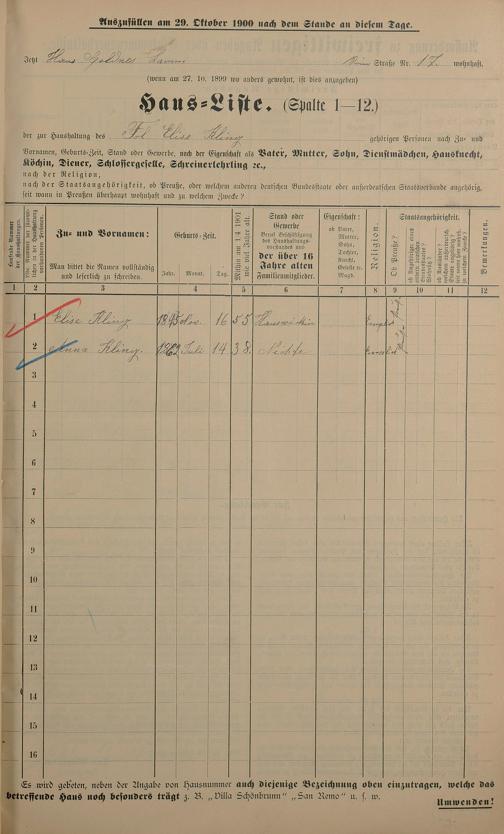 Auszufüllen am 29. Oktober 1900 nach dem Stande an diesem Tage.
Jetzt Haus Goldnes Lamm Straße Nr. 17. wohnhaft.
(wenn am 27. 10. 1899 wo anders gewohnt, ist dies anzugeben)
Haus-Liste. (Spalte 1—12.)
der zur Haushaltung des Frl. Elise Kling gehörigen Personen nach Zu- und
Vornamen, Geburts-Zeit, Stand oder Gewerbe, nach der Eigenschaft als Vater, Mutter, Sohn, Dienstmädchen, Hausknecht,
Köchin, Diener, Schlossergeselle, Schreinerlehrling ꝛc.,
nach der Religion,
nach der Staatsangehörigkeit, ob Preuße, oder welchem anderen deutschen Bundesstaate oder außerdeutschen Staatsverbande angehörig,
seit wann in Preußen überhaupt wohnhaft und zu welchem Zwecke?
Laufende Nummer der Haushaltungen.
Zu- und Vornamen:
Man bittet die Namen vollständig und leserlich zu schreiben.
Geburts-Zeit.
Jahr. Monat. Tag.
Mithin am 1. 4. 1901 wie viel Jahre alt.
Stand oder Gewerbe
Beruf, Beschäftigung des Haushaltungsvorstandes und
der über 16 Jahre alten
Familienmitglieder.
Eigenschaft:
ob Vater, Mutter, Sohn, Tochter, Knecht, Geselle u. Magd.
Religion.
Staatsangehörigkeit.
Ob Preuße?
Bemerkungen.
1 2 3 4 5 6 7 8 9 10 11 12
1 Elise Kling 1845 Nov. 16 55
2 Anna Kling. 1862 Juli 14 38. Nichte
3
4
5
6
7
8
9
10
11
12
13
14
15
16
Es wird gebeten, neben der Angabe von Hausnummer auch diejenige Bezeichnung oben einzutragen, welche das
betreffende Haus noch besonders trägt z. B. „Villa Schönbrunn" „San Remo" u. s. w.
Umwenden!